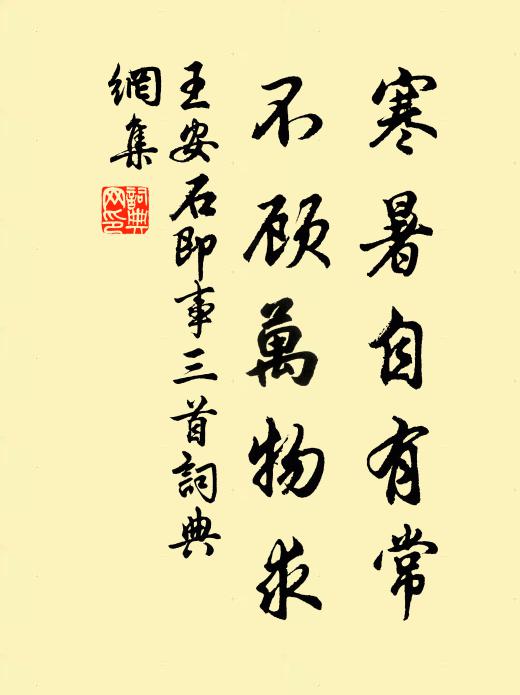 寒暑自有常
不顾萬物求
王安石即事三首詞典
網集
詞典
網印